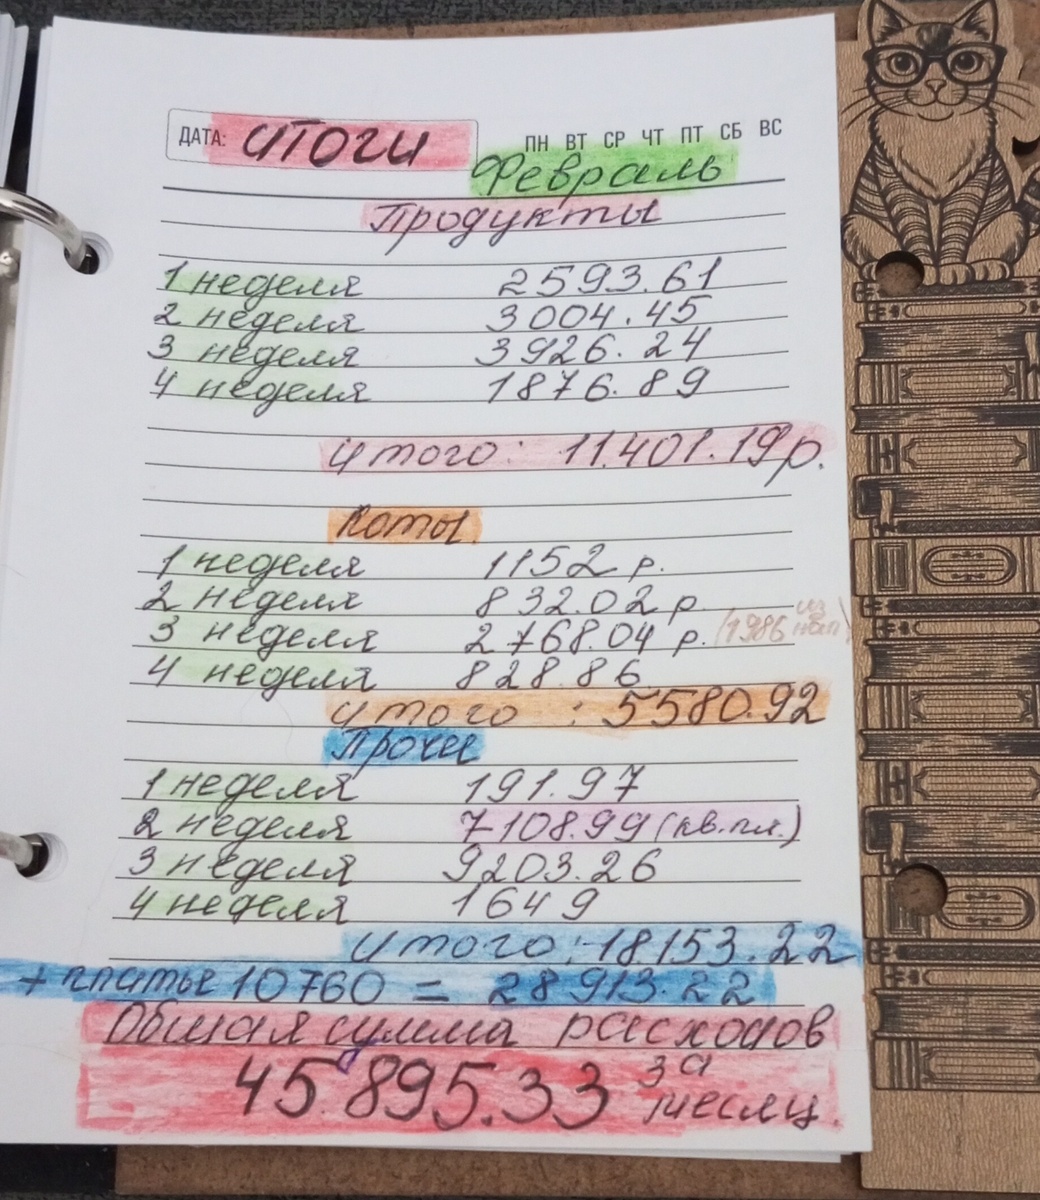 ДАТА: Итоги ПН ВТ СР ЧТ ПТ СБ ВС
Февраль
Продукты
1 неделя 2593.61
2 неделя 3004.45
3 неделя 3926.24
4 неделя 1876.89
Итого: 11.401.19р.
Коты
1 неделя 1152 р.
2 неделя 832.02 р
3 неделя 2768.04 р. (1986 из нал)
4 неделя 828.86
Итого : 5580.92
Прочи
1 неделя 191.97
2 неделя 7108.99 (кв.пл.)
3 неделя 9203.26
4 неделя 1649
Итого: 18153.22
+ платье 10760 = 28913.22
Общая сумма расходов
45 895.33 за месяц.